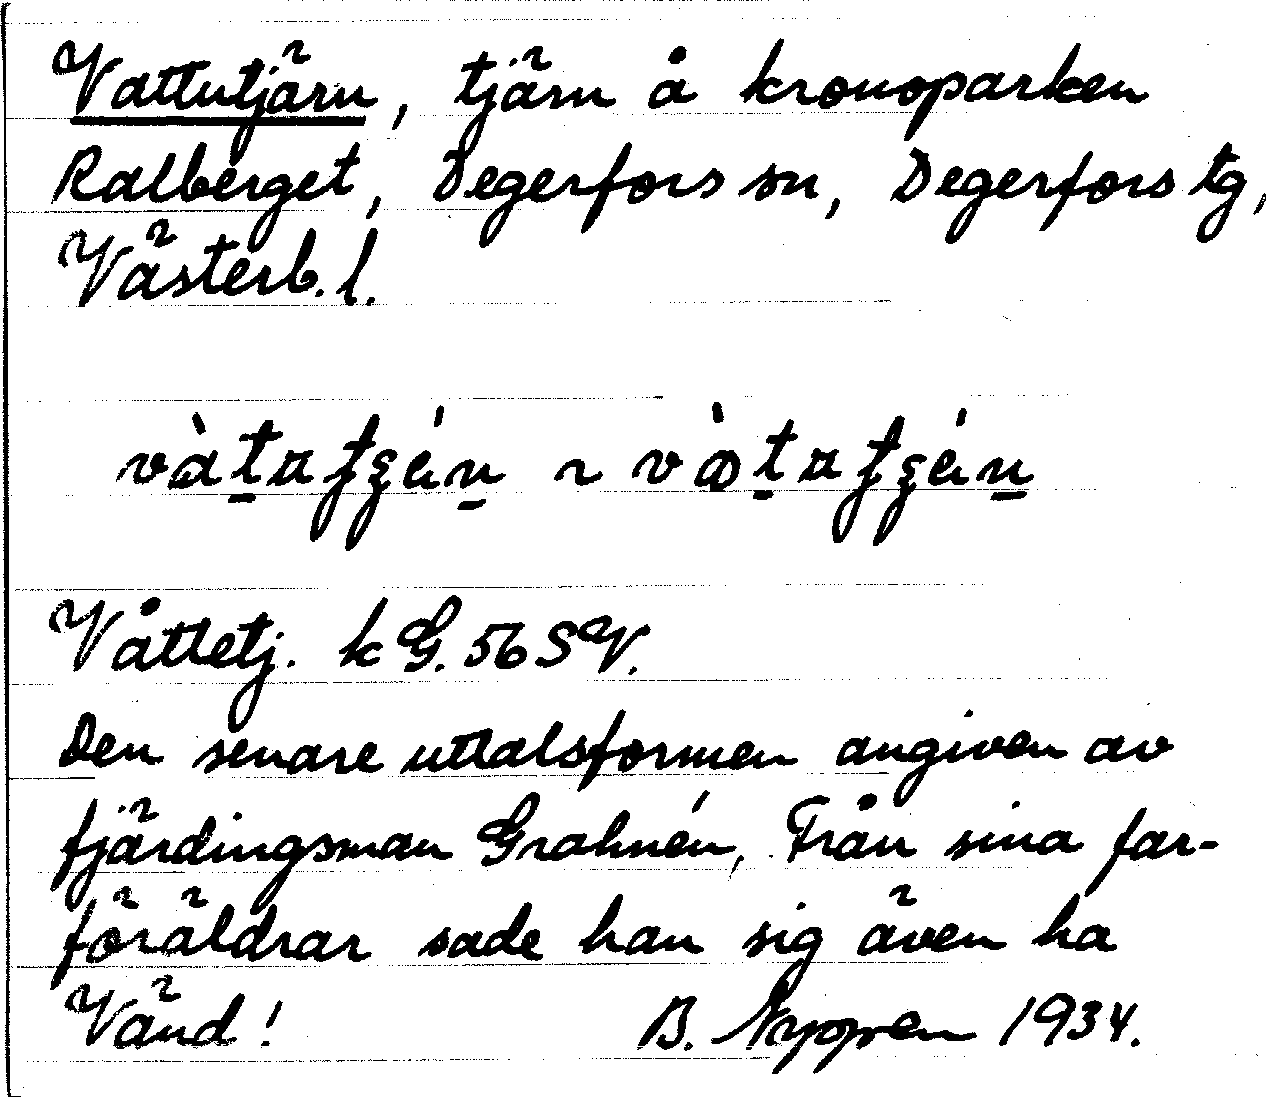 Vattutjärn, tjärn å kronoparken
Ralberget, Degerfors sn, Degerfors tg,
Västerb. l.
Våttetj. k G. 56 SV.
Den senare uttalsformen angiven av
fjärdingsman Grahnén. Från sina far-
föräldrar sade han sig även ha
Vänd! B. Nygren 1934.